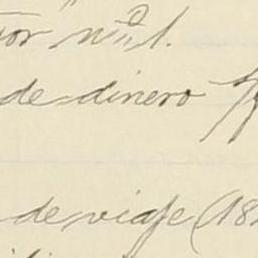 tor nº 1.
de dinero
de viaje (18